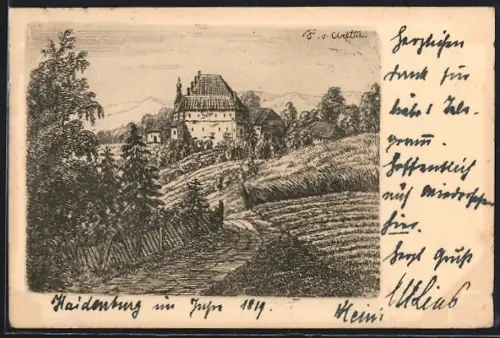 F. v. Aretin
Herzlichen
Dank für
liebes Tele-
gramm.
Hoffentlich
auf Wiedersehen
hier.
Herzl. Gruß
Haidenburg im Jahre 1819.